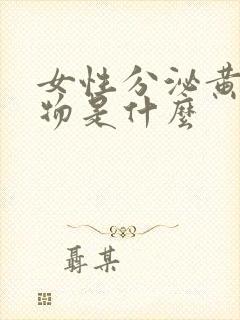 女性分泌黄
物是什麼
聶某